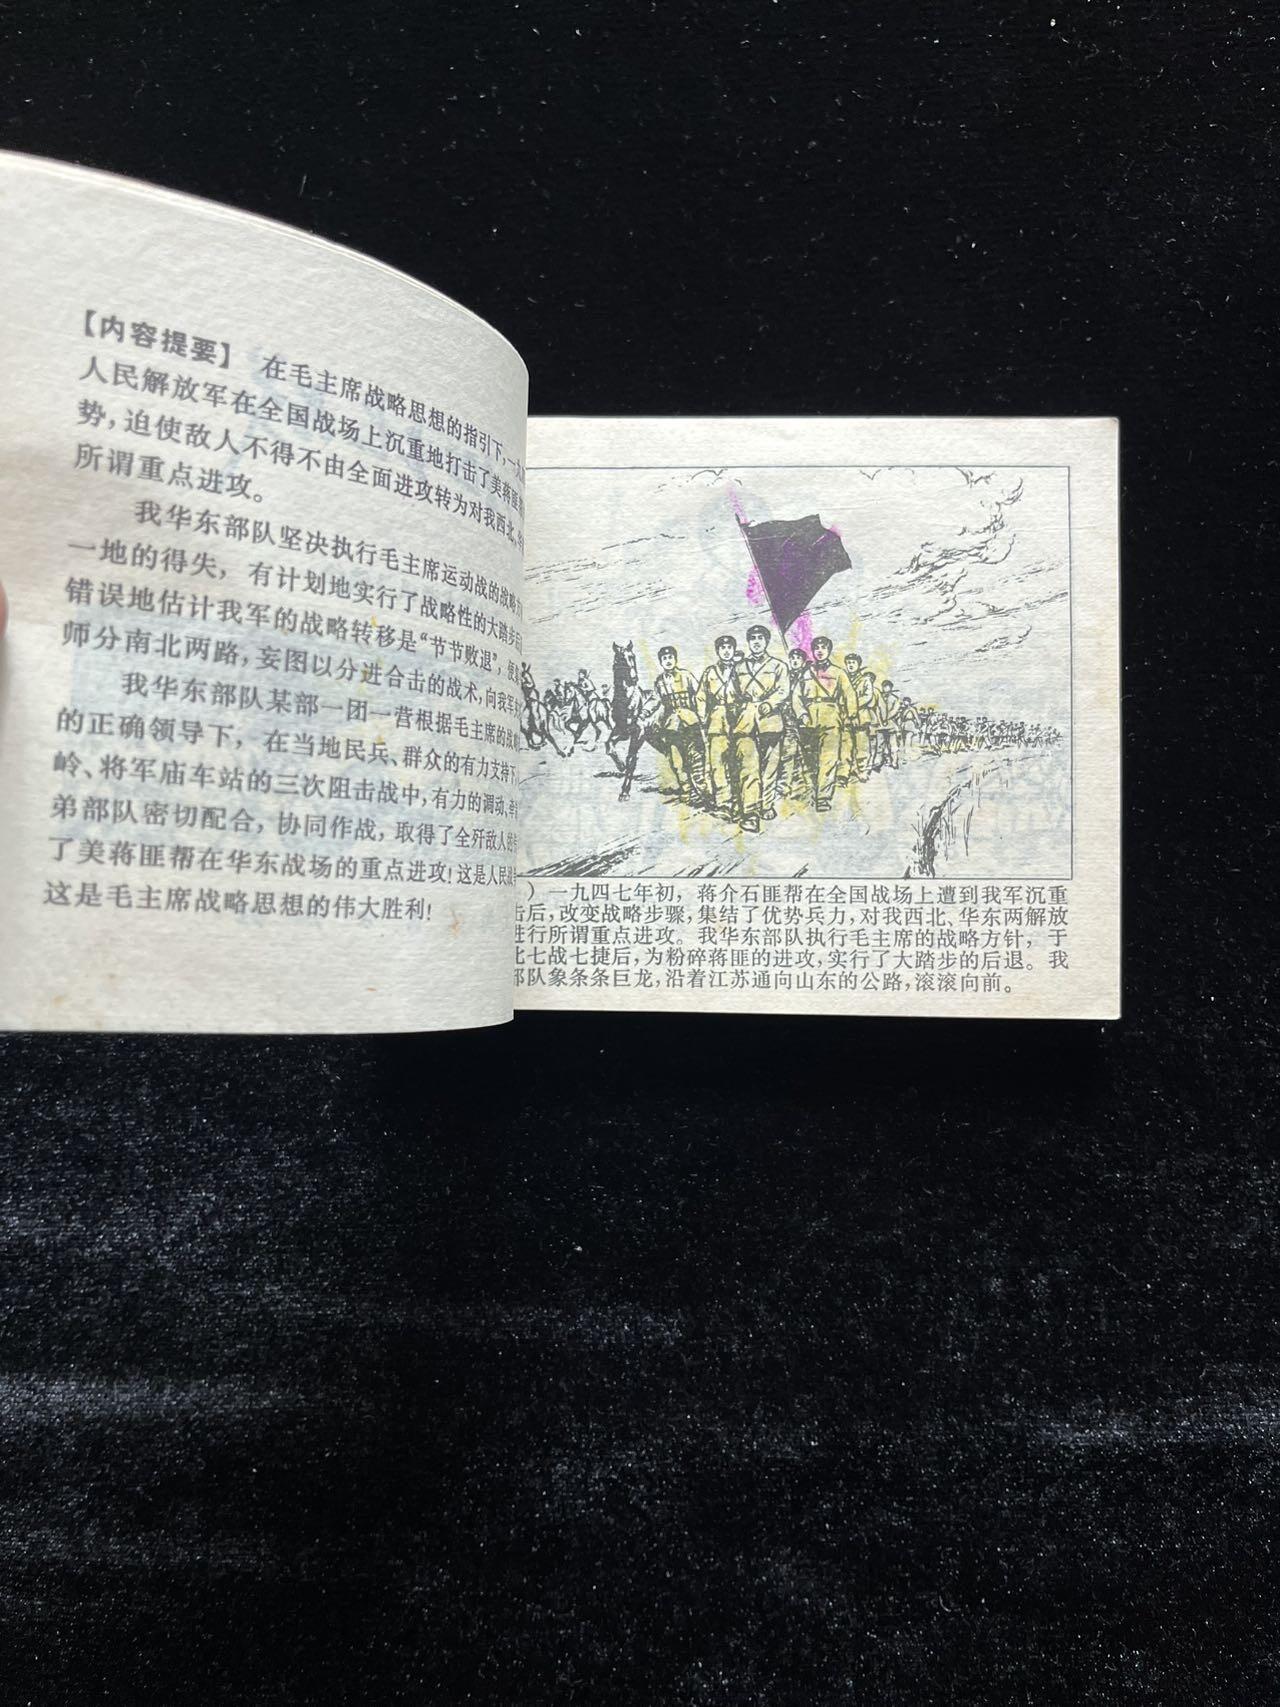 【内容提要】 在毛主席战略思想的指引下,一九
人民解放军在全国战场上沉重地打击了美蒋匪
势,迫使敌人不得不由全面进攻转为对我西北、
所谓重点进攻。
我华东部队坚决执行毛主席运动战的战略方
一地的得失,有计划地实行了战略性的大踏步
错误地估计我军的战略转移是“节节败退”,
师分南北两路,妄图以分进合击的战术,向我军
我华东部队某部一团一营根据毛主席的战
的正确领导下,在当地民兵、群众的有力支持下
岭、将军庙车站的三次阻击战中,有力的调动、
弟部队密切配合,协同作战,取得了全歼敌人
了美蒋匪帮在华东战场的重点进攻!这是人民
这是毛主席战略思想的伟大胜利!
)一九四七年初,蒋介石匪帮在全国战场上遭到我军沉重
后,改变战略步骤,集结了优势兵力,对我西北、华东两解放
进行所谓重点进攻。我华东部队执行毛主席的战略方针,于
北七战七捷后,为粉碎蒋匪的进攻,实行了大踏步的后退。我
部队象条条巨龙,沿着江苏通向山东的公路,滚滚向前。